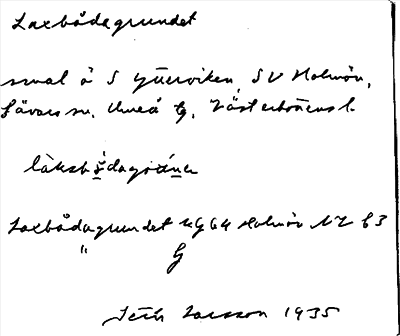 Laxbådagrundet
smal ö S Ytterviken, SV Holmön,
Sävars sn. Umeå tg. Västerbottens l.
Laxbådagrundet KG 64 Holmön NV 63
" G
Seth Larsson 1935